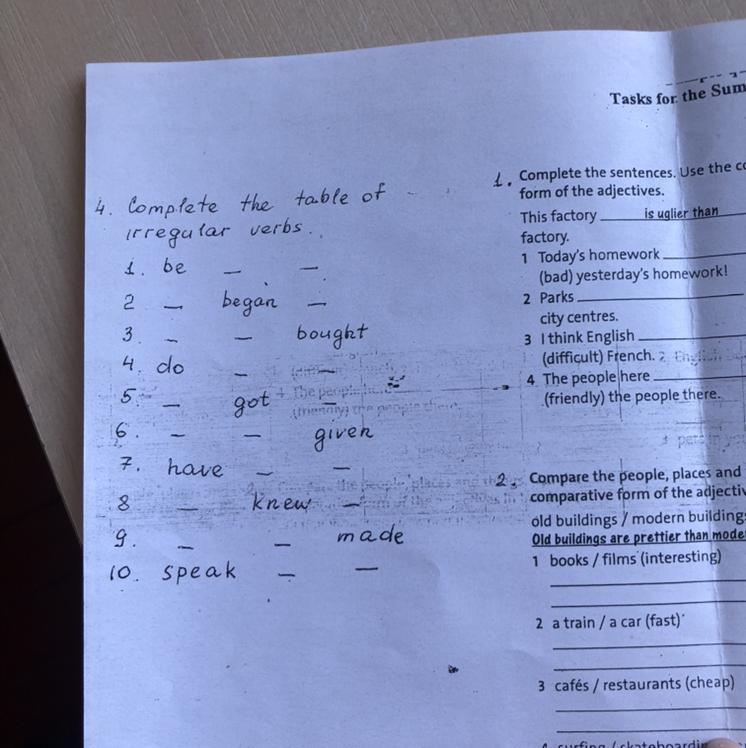 4. Complete the table of
irregular verbs.
1. be — —
2 — began —
3. — — bought
4. do — —
5. — got —
6. — — given
7. have — —
8 — knew —
9. — — made
10. speak — —
Tasks for the
1. Complete the sentences. Use the
form of the adjectives.
This factory is uglier than
factory.
1 Today's homework
(bad) yesterday's homework!
2 Parks
city centres.
3 I think English
(difficult) French.
4 The people here
(friendly) the people there.
2. Compare the people, places and
comparative form of the
old buildings / modern
Old buildings are prettier than
1 books / films (interesting)
2 a train / a car (fast)
3 cafés / restaurants (cheap)